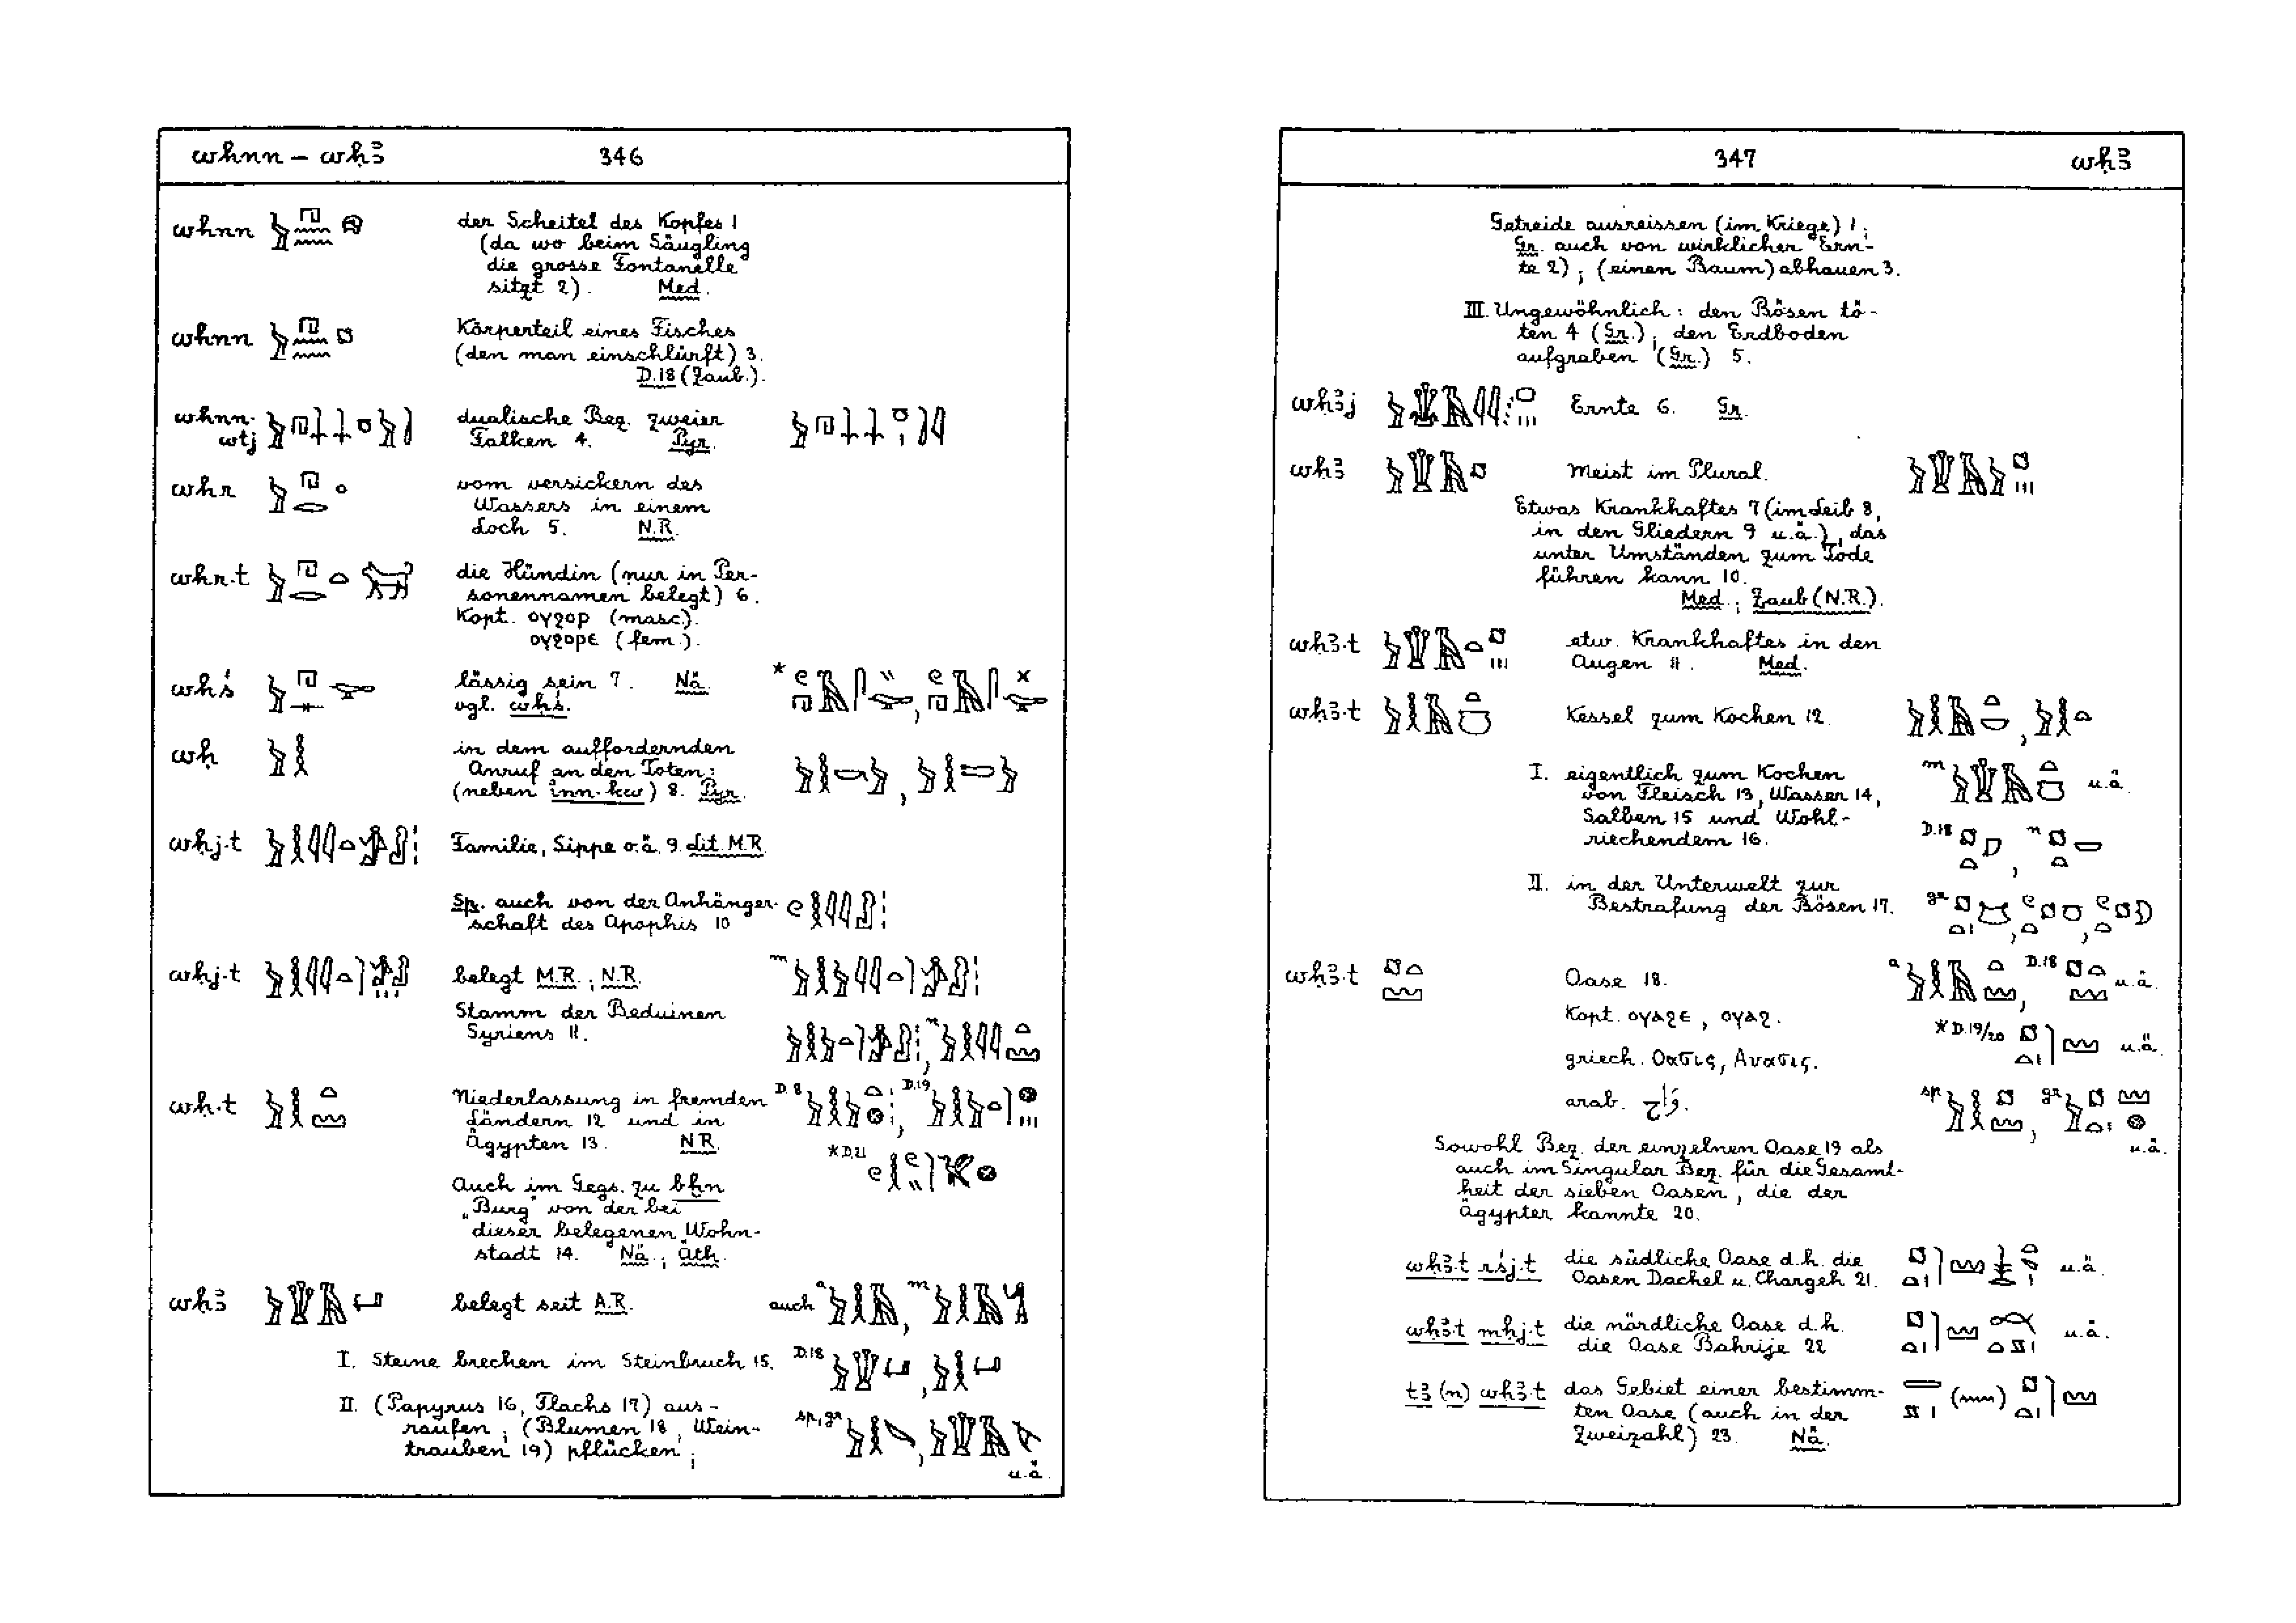 whnn – wḥꜣ 346
whnn der Scheitel des Kopfes 1
(da wo beim Säugling
die grosse Fontanelle
sitzt 2). Med.
whnn Körperteil eines Fisches
(den man einschlürft) 3.
D.18 (Zaub.).
whnn- dualische Bez. zweier
wtj Falken 4. Pyr.
whr vom versickern des
Wassers in einem
Loch 5. N.R.
whr.t die Hündin (nur in Per-
sonennamen belegt) 6.
Kopt. ⲟⲩϩⲟⲣ (masc.).
ⲟⲩϩⲟⲣⲉ (fem.).
whś lässig sein 7. Nä.
vgl. wḥś.
wḥ in dem auffordernden
Anruf an den Toten:
(neben inn-kw) 8. Pyr.
wḥj.t Familie, Sippe o.ä. 9. Lit. M.R.
Sp. auch von der Anhänger-
schaft des Apophis 10
wḥj.t belegt M.R.; N.R. m
Stamm der Beduinen
Syriens 11. n
wḥ.t Niederlassung in fremden D.18 D.19
Ländern 12 und in
Ägypten 13. N.R. *D.21
Auch im Gegs. zu bḫn
„Burg" von der bei
dieser belegenen Wohn-
stadt 14. Nä.; Äth.
wḥꜣ belegt seit A.R. auch a , m
I. Steine brechen im Steinbruch 15. D.18
II. (Papyrus 16, Flachs 17) aus-
raufen; (Blumen 18, Wein- sp.gr
trauben 19) pflücken;
u.ä.
347 wḥꜣ
Getreide ausreissen (im Kriege) 1;
Gr. auch von wirklicher Ern-
te 2); (einen Baum) abhauen 3.
III. Ungewöhnlich: den Bösen tö-
ten 4 (Gr.); den Erdboden
aufgraben (Gr.) 5.
wḥꜣj Ernte 6. Gr.
wḥꜣ meist im Plural.
Etwas Krankhaftes 7 (im Leib 8,
in den Gliedern 9 u.ä.), das
unter Umständen zum Tode
führen kann 10.
Med.; Zaub (N.R.).
wḥꜣ.t etw. Krankhaftes in den
Augen 11. Med.
wḥꜣ.t Kessel zum Kochen 12.
I. eigentlich zum Kochen m u.ä.
von Fleisch 13, Wasser 14,
Salben 15 und Wohl- D.18 n
riechendem 16.
II. in der Unterwelt zur
Bestrafung der Bösen 17. gr
wḥꜣ.t Oase 18. a D.18 u.ä.
Kopt. ⲟⲩⲁϩⲉ, ⲟⲩⲁϩ. *D.19/20 u.ä.
griech. Οασις, Αυασις.
arab. وَاح. sp gr
Sowohl Bez. der einzelnen Oase 19 als u.ä.
auch im Singular Bez. für die Gesamt-
heit der sieben Oasen, die der
Ägypter kannte 20.
wḥꜣ.t rśj.t die südliche Oase d.h. die u.ä.
Oasen Dachel u. Chargeh 21.
wḥꜣ.t mḥj.t die nördliche Oase d.h. u.ä.
die Oase Bahrije 22
tꜣ (n) wḥꜣ.t das Gebiet einer bestimm-
ten Oase (auch in der
Zweizahl) 23. Nä.